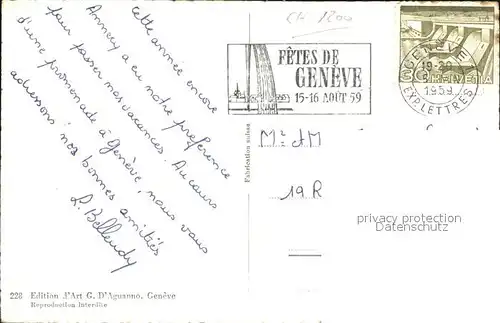 Cette année encore
Annecy a eu notre préférence
pour passer nos vacances. Au cours
d'une promenade à Genève, nous vous
adressons nos bonnes amitiés
L. Belleudy
CH 1200
FÊTES DE
GENÈVE
15-16 AOÛT 59
GENÈVE
19-20
1959
EXP. LETTRES
HELVETIA
Fabrication suisse
Mr et M
19 R
privacy protection
Oldthing.
228 Edition d'Art G. D'Aguanno, Genève
Reproduction interdite